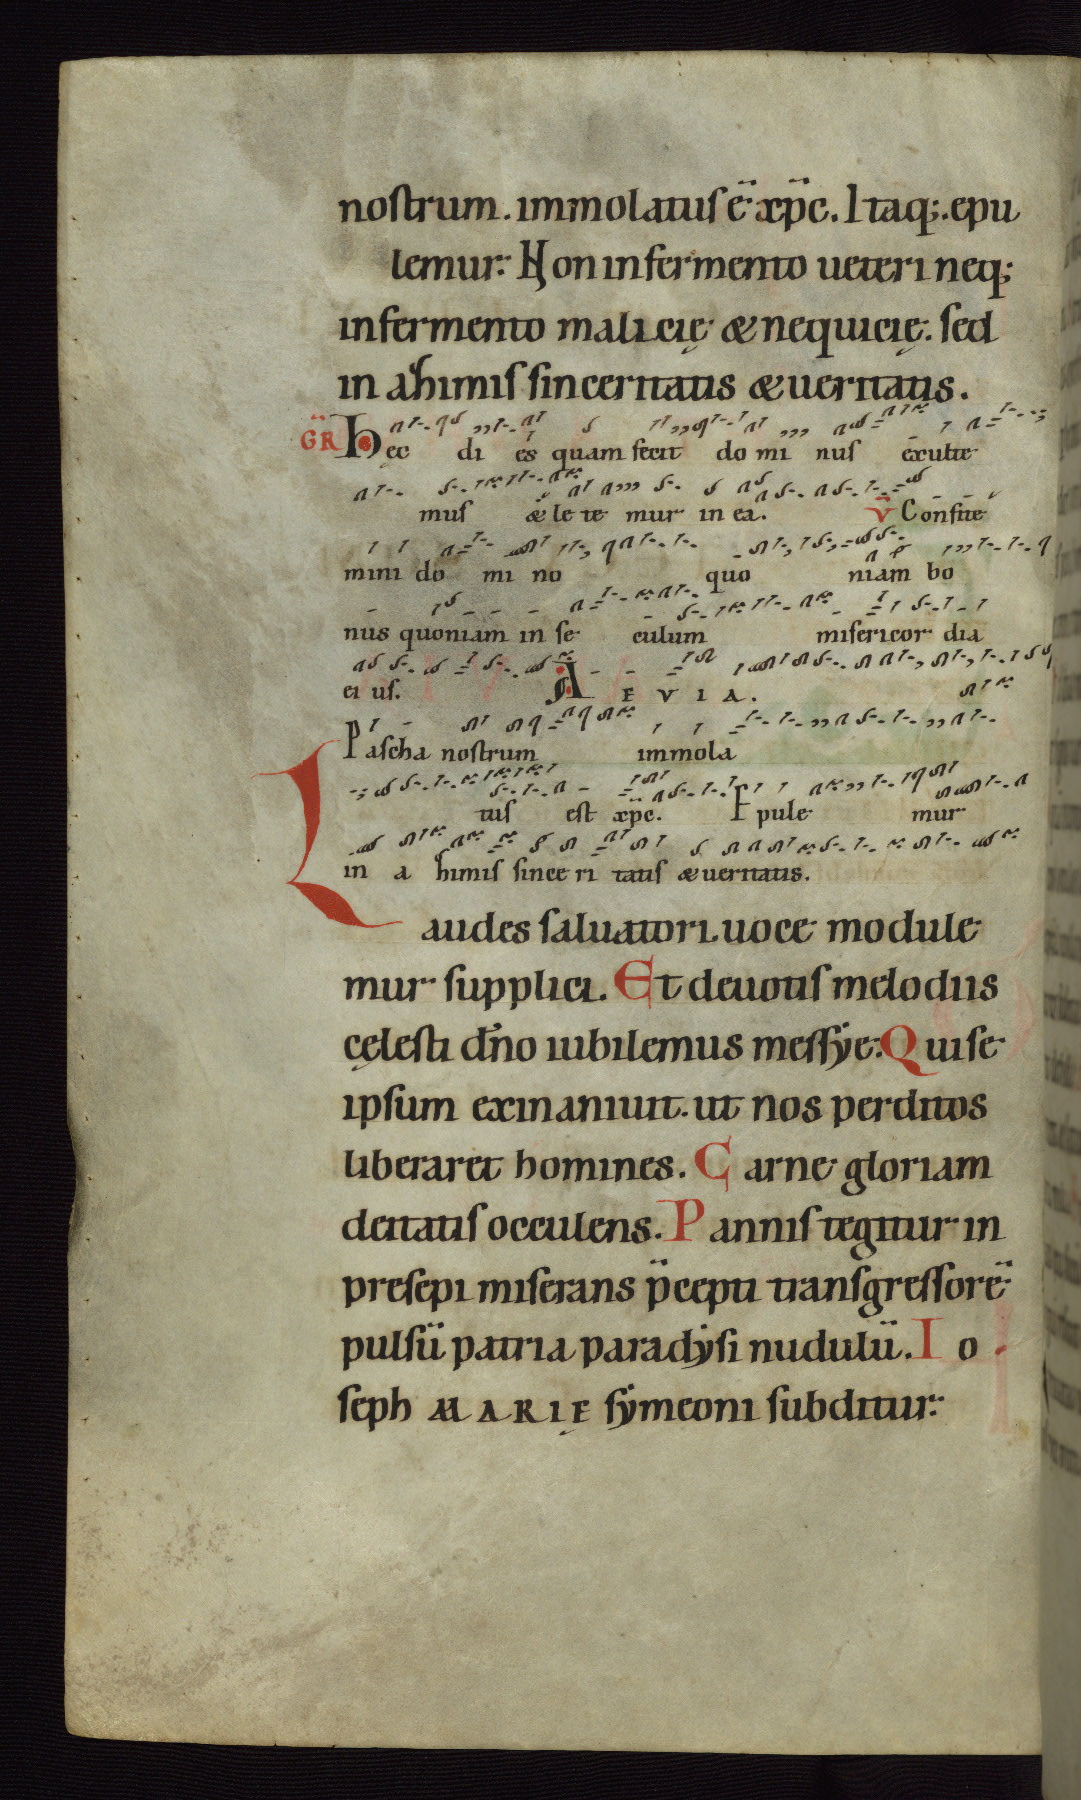 nostrum. immolatus ē xp̄c. Itaq;. epu
lemur. Non in fermento ueteri neq;
in fermento malicię & nequicię. sed
in azimis sinceritatis & ueritatis.
GR Hęc di es quam fecit do mi nus exulte
mus & le te mur in ea. V Confite
mini do mi no quo niam bo
nus quoniam in se culum misericor dia
ei us. A E V I A.
Pascha nostrum immola
tus est xp̄c. Epule mur
in a zimis since ri tatis & ueritatis.
Laudes saluatori uoce module
mur supplici. Et deuotis melodiis
cęlesti dn̄o iubilemus messẏe. Qui se
ipsum exinaniuit. ut nos perditos
liberaret homines. Carne gloriam
deitatis occulens. Pannis tegitur in
presepi miserans p̄cepti transgressorē
pulsū patria paradẏsi nudulū. Io
seph MARIĘ sẏmeoni subditur.